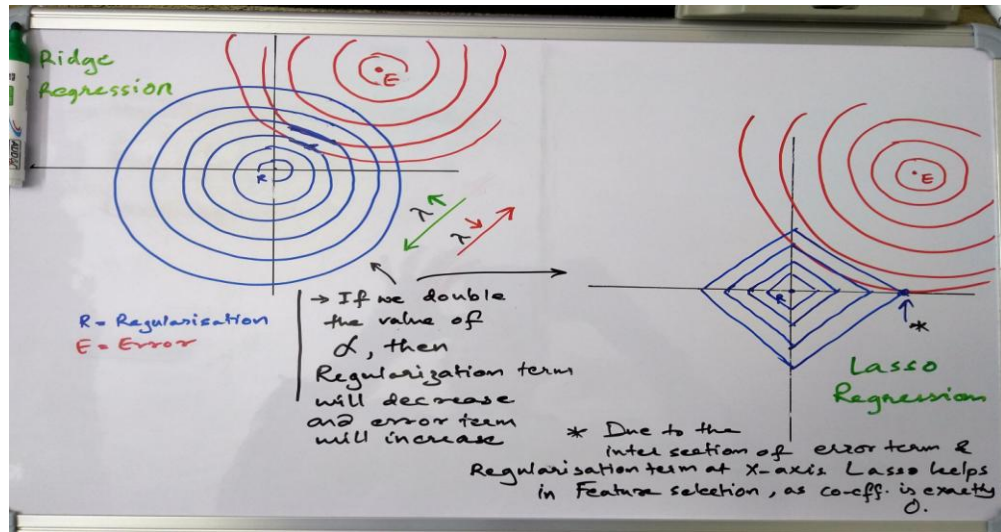 Ridge
Regression
E
R
λ
λ
R = Regularisation
E = Error
→ If we double
the value of
α, then
Regularization term
will decrease
and error term
will increase
E
R
*
Lasso
Regression
* Due to the
intersection of error term &
Regularisation term at X-axis Lasso helps
in Feature selection, as co-eff. is exactly
0.